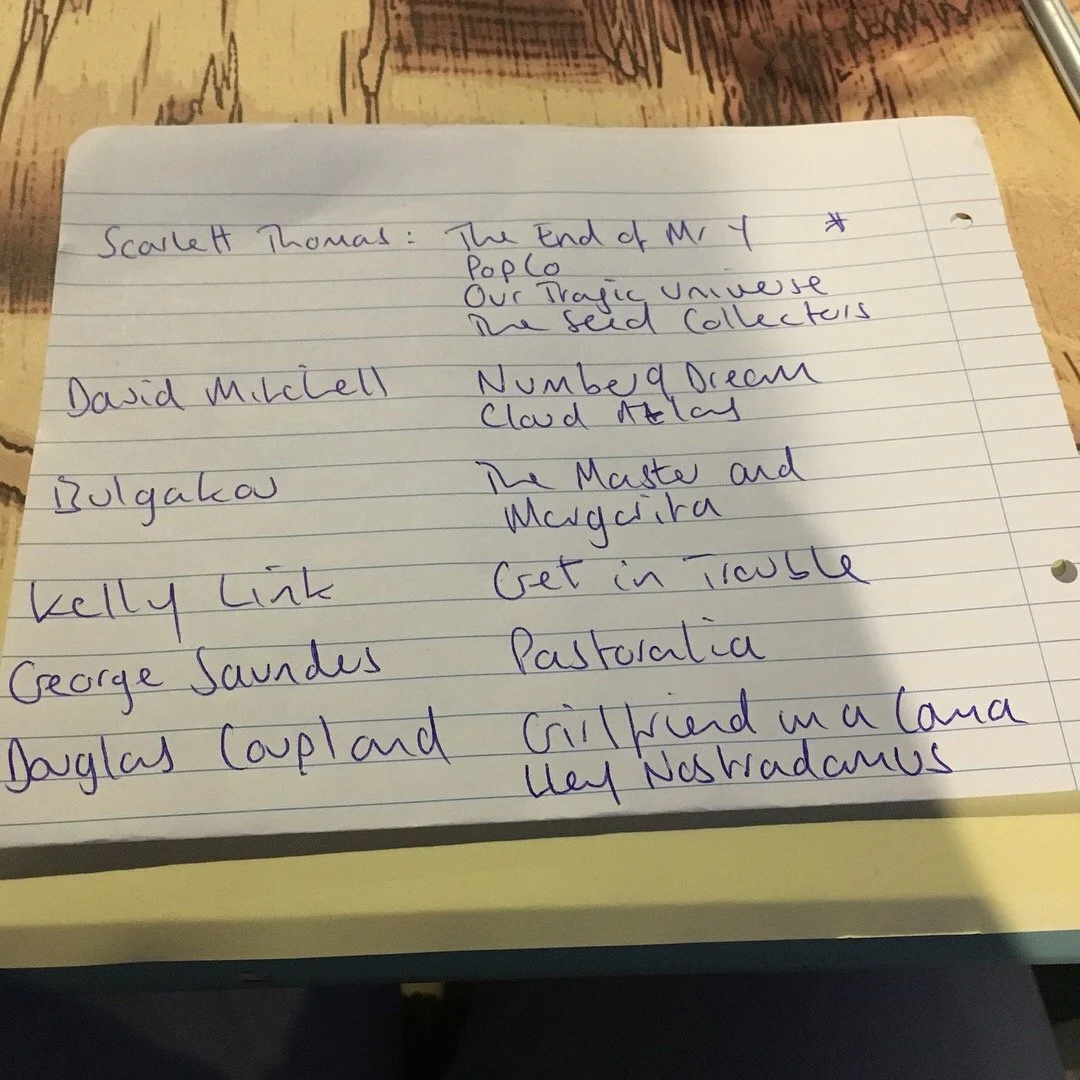 Scarlett Thomas: The End of Mr Y *
PopCo
Our Tragic Universe
The Seed Collectors
David Mitchell Number 9 Dream
Cloud Atlas
Bulgakov The Master and
Margarita
Kelly Link Get in Trouble
George Saunders Pastoralia
Douglas Coupland Girlfriend in a Coma
Hey Nostradamus